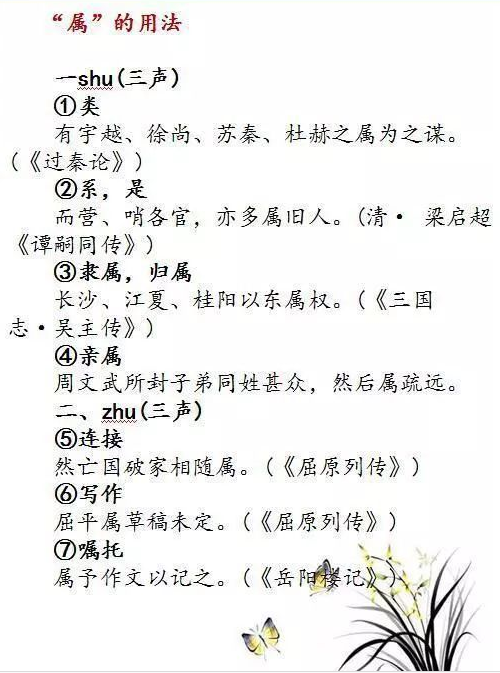 “属”的用法
一shu(三声)
①类
有宁越、徐尚、苏秦、杜赫之属为之谋。
(《过秦论》)
②系，是
而营、哨各官，亦多属旧人。(清· 梁启超
《谭嗣同传》)
③隶属，归属
长沙、江夏、桂阳以东属权。(《三国
志·吴主传》)
④亲属
周文武所封子弟同姓甚众，然后属疏远。
二、zhu(三声)
⑤连接
然亡国破家相随属。(《屈原列传》)
⑥写作
屈平属草稿未定。(《屈原列传》)
⑦嘱托
属予作文以记之。(《岳阳楼记》)